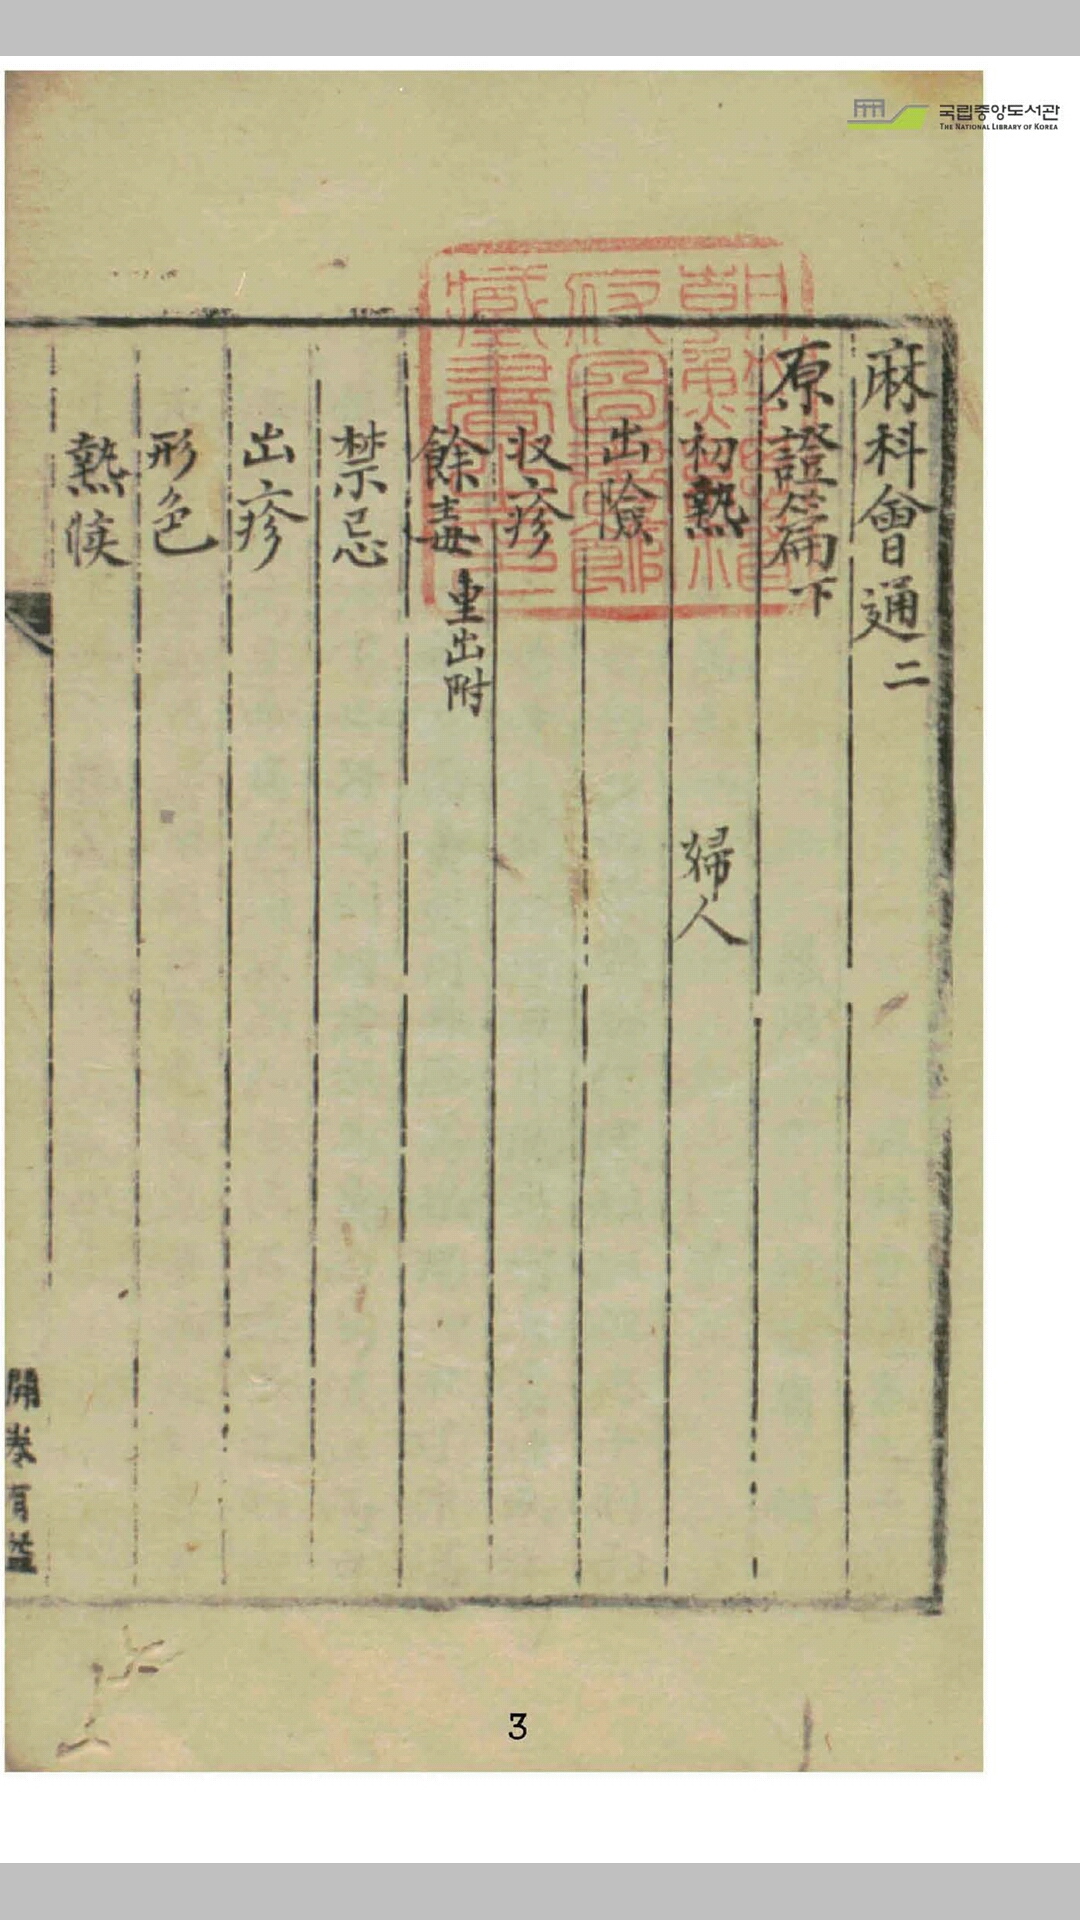 국립중앙도서관
THE NATIONAL LIBRARY OF KOREA
麻科會通 二
原證篇 下
初熱 婦人
出險
収疹
餘毒 重出附
禁忌
出疹
形色
熱候
開卷有益
3